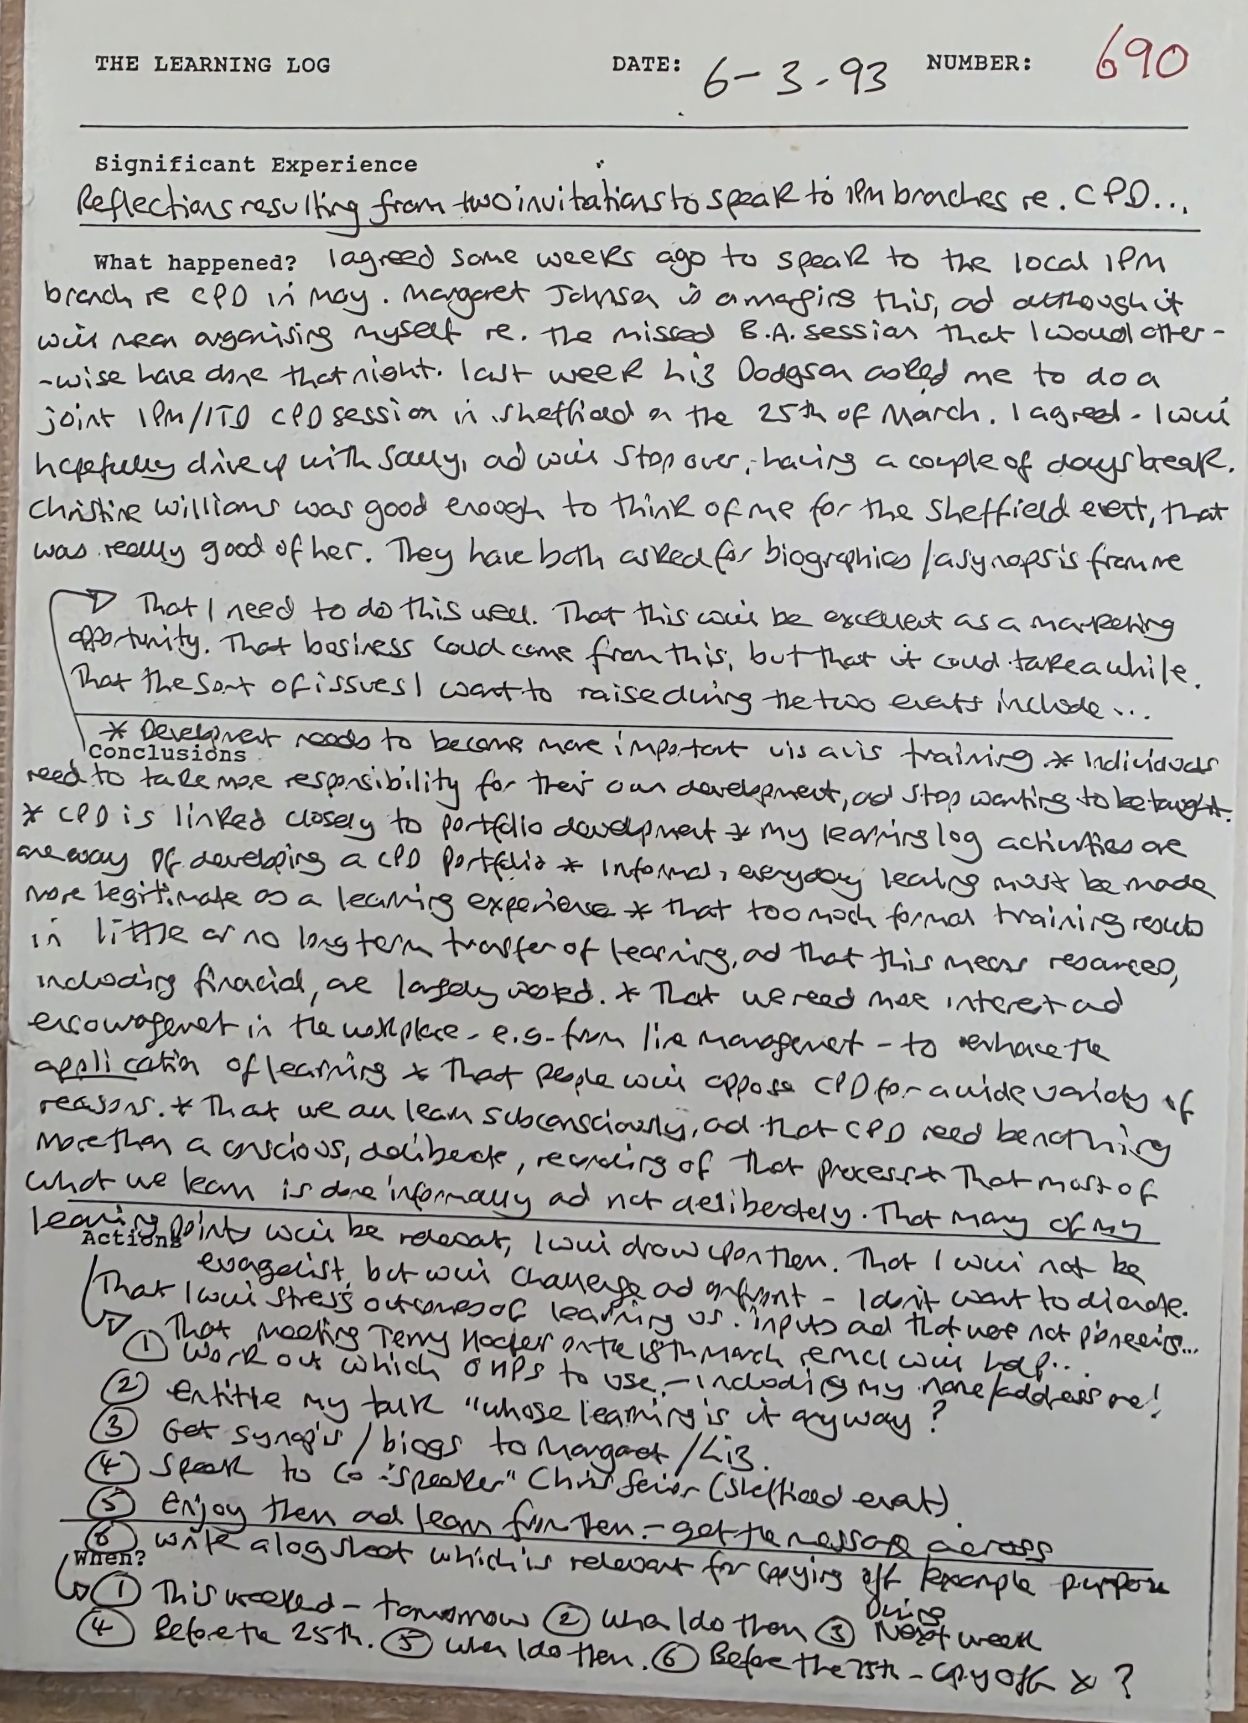 THE LEARNING LOG DATE: 6-3-93 NUMBER: 690
Significant Experience
Reflections resulting from two invitations to speak to IPM branches re. CPD...
What happened? I agreed some weeks ago to speak to the local IPM
branch re CPD in May. Margaret Johnson is organising this, ad although it
will mean organising myself re. the missed B.A. session that I would other-
-wise have done that night. Last week Liz Dodgson asked me to do a
joint IPM/ITD CPD session in Sheffield on the 25th of March. I agreed - I will
hopefully drive up with Sally, ad will stop over, having a couple of days break.
Christine Williams was good enough to think of me for the Sheffield event, that
was really good of her. They have both asked for biographies / a synopsis from me
That I need to do this well. That this will be excellent as a marketing
opportunity. That business could come from this, but that it could take a while.
That the sort of issues I want to raise during the two events include...
* Development needs to become more important vis a vis training * Individuals
Conclusions
need to take more responsibility for their own development, ad stop wanting to be taught.
* CPD is linked closely to portfolio development * My learning log activities are
one way of developing a CPD portfolio * Informal, everyday learning must be made
more legitimate as a learning experience * That too much formal training results
in little or no long term transfer of learning, ad that this means resources,
including financial, are largely wasted. * That we need more interest ad
encouragement in the workplace - e.g. from line management - to enhance the
application of learning * That people will oppose CPD for a wide variety of
reasons. * That we all learn subconsciously, ad that CPD need be nothing
more than a conscious, deliberate, recording of that process * That most of
what we learn is done informally ad not deliberately. That many of my
learning points will be relevant, I will draw upon them. That I will not be
Actions
evangelist, but will challenge ad confront - I don't want to dictate.
That I will stress outcomes of learning vs. inputs ad that we're not pioneering...
That meeting Terry Hocker on the 18th March, EMCL will help...
① Work out which OHPs to use - including my name/address one!
② Entitle my talk "whose learning is it anyway?
③ Get synopsis / biogs to Margaret / Liz.
④ Speak to co "speaker" Chris Senior (Sheffield event)
⑤ Enjoy them ad learn from them - get the message across
⑥ Write a log sheet which is relevant for copying off example purpose
When?
① This weekend - tomorrow ② When I do them ③ During Next week
④ Before the 25th. ⑤ When I do them. ⑥ Before the 25th - copy off * ?